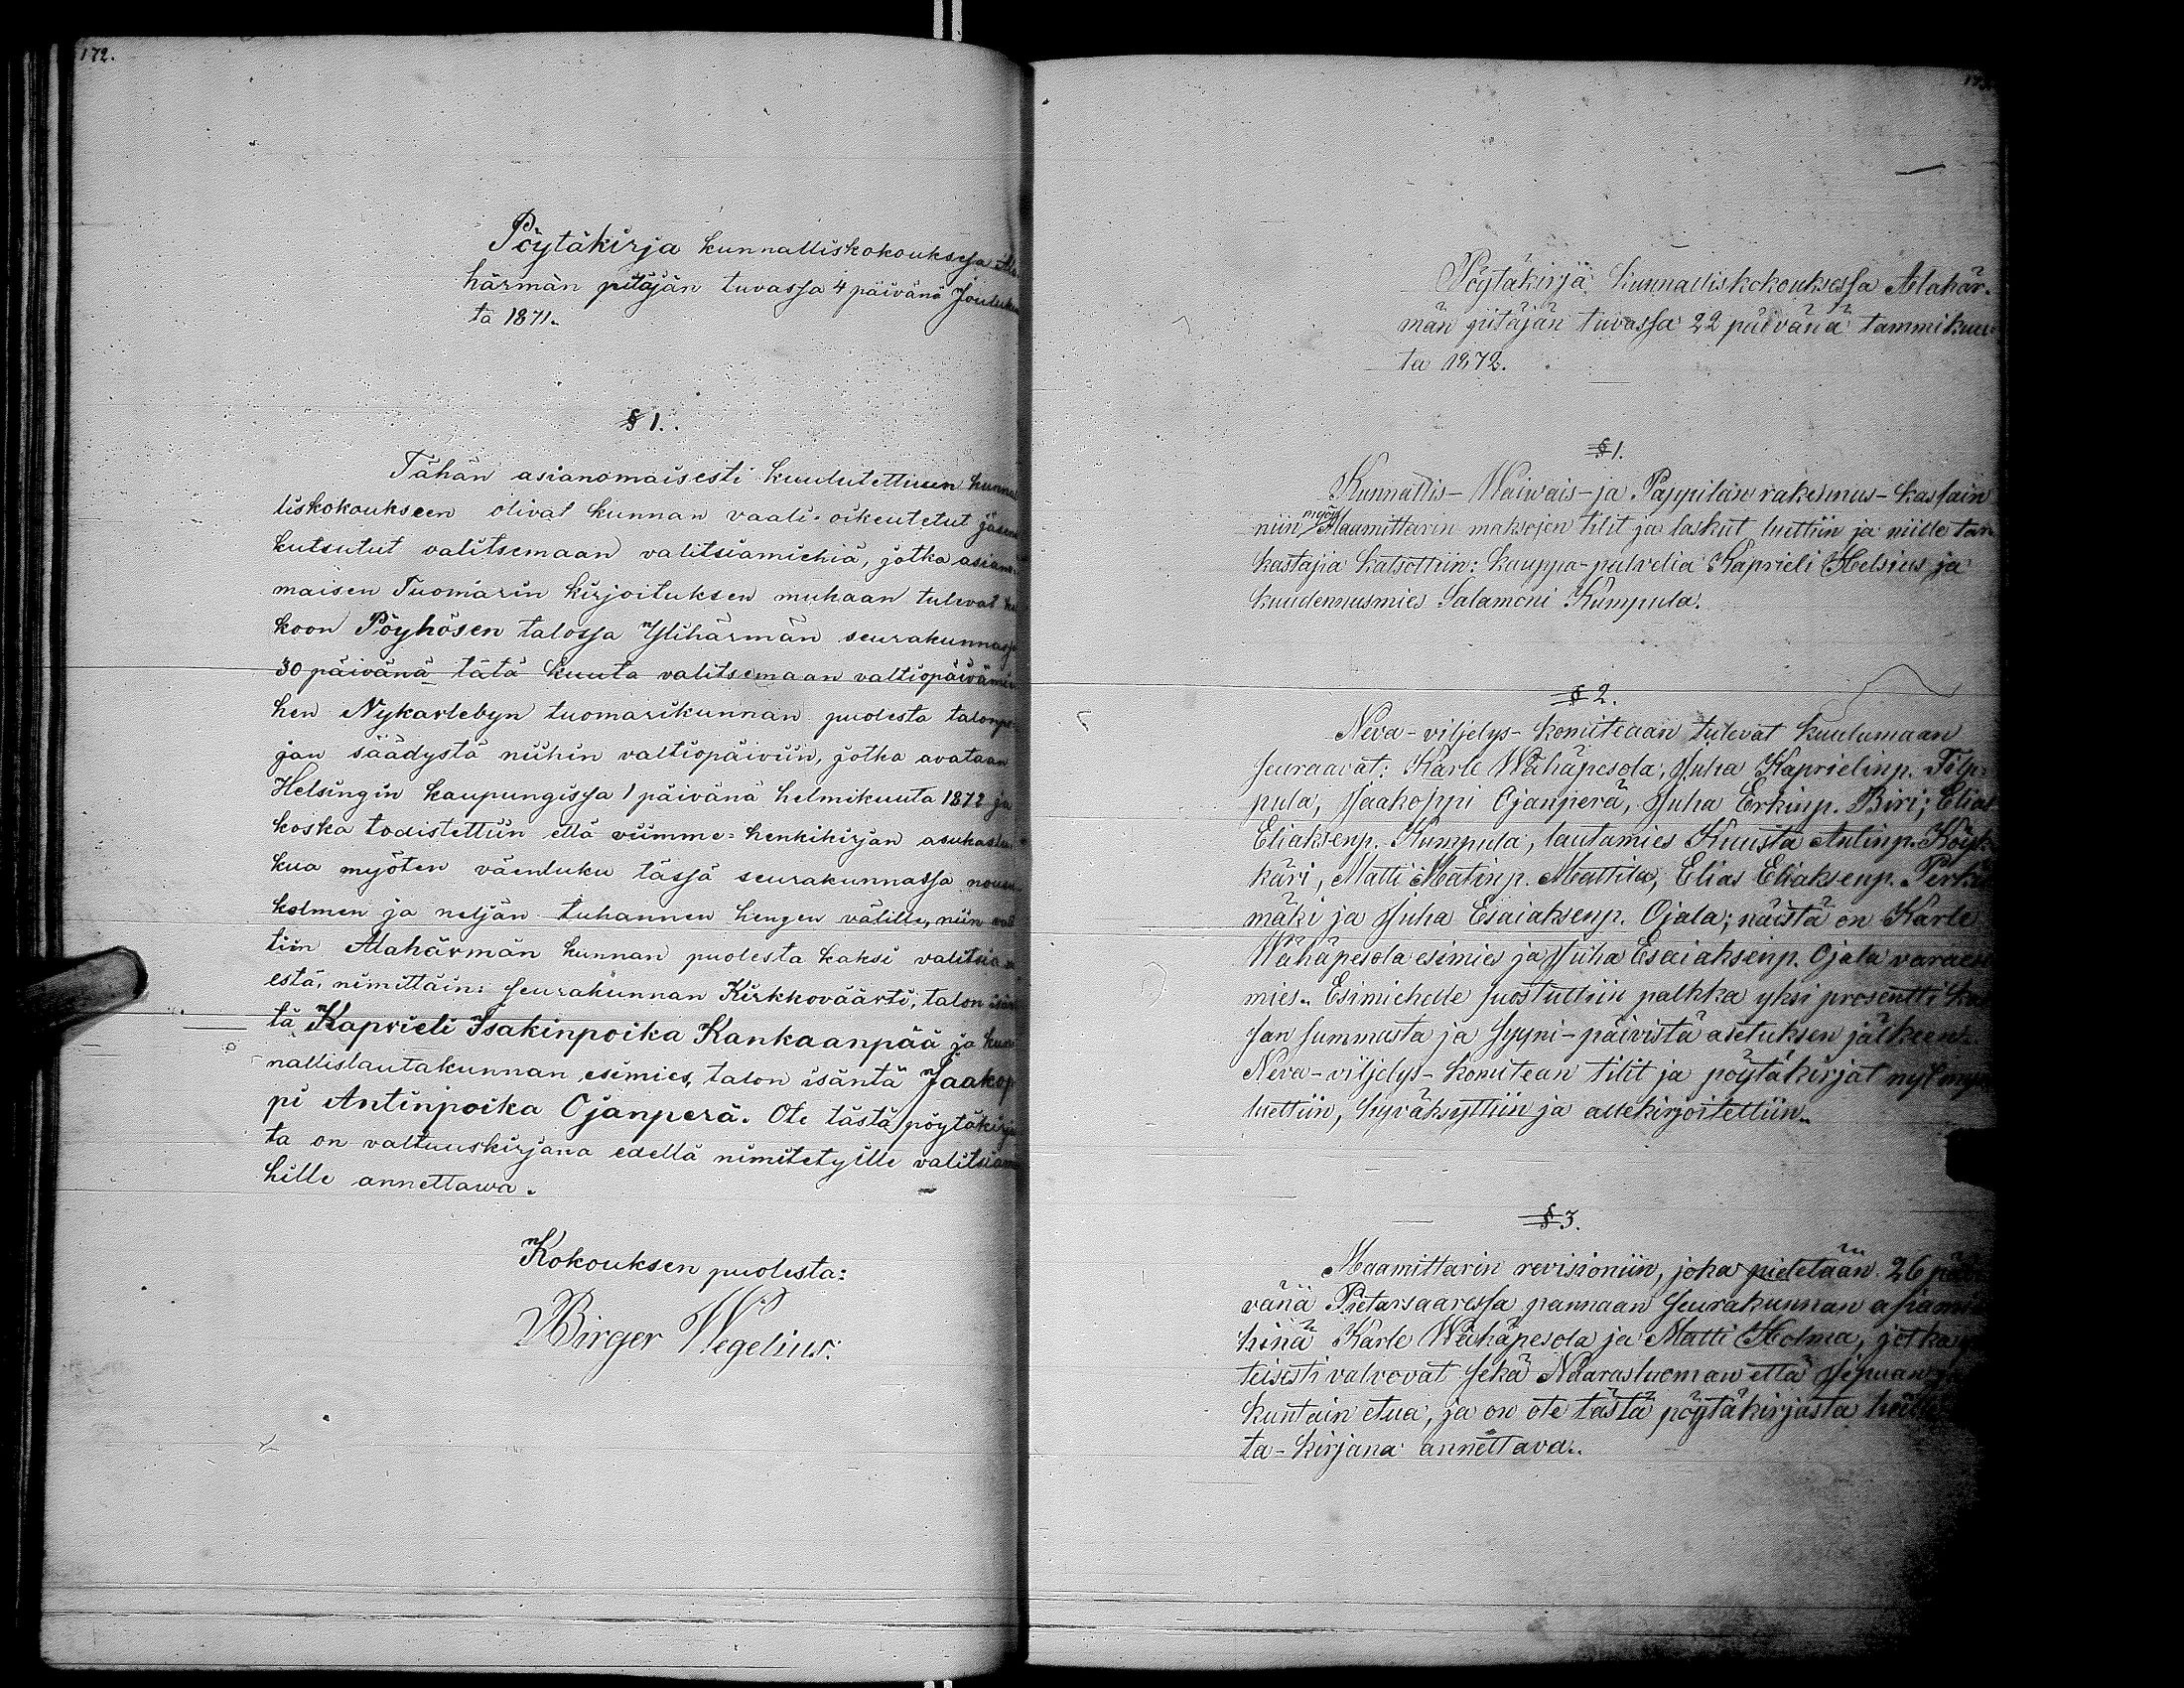 172.
Pöytäkirja kunnalliskokouksessa Ala
härmän pitäjän tuvassa 4 päivänä Jouluku
ta 1871.
§ 1.
Tähän asianomaisesti kuulutettuun kunna
liskokoukseen olivat kunnan vaali-oikeutetut jäsen
kutsutut valitsemaan valitsiamiehiä, jotka asiano
maisen Tuomarin kirjoituksen mukaan tulevat
koon Pöyhösen talossa Ylihärmän seurakunnassa
30 päivänä tätä kuuta valitsemaan valtiopäivämie
hen Nykarlebyn tuomarikunnan puolesta talonpo
jan säädystä niihin valtiopäiviin, jotka avataan
Helsingin kaupungissa 1 päivänä helmikuuta 1872 ja
koska todistettiin että viimme-henkikirjan asukaslu
kua myöten väenluku tässä seurakunnassa nousu
kolmen ja neljän tuhannen hengen välille, niin val
tiin Alahärmän kunnan puolesta kaksi valitsia
estä, nimittäin: seurakunnan Kirkkoväärti, talon isän
tä Kaprieli Isakinpoika Kankaanpää ja kun
nallislautakunnan esimies, talon isäntä Jaakop
pi Antinpoika Ojanperä. Ote tästä pöytäkirja
ta on valtuuskirjana edellä nimitetyille valitsiam
hille annettawa.
Kokouksen puolesta:
Birger Wegelius.
173.
Pöytäkirja Kunnalliskokouksessa Alahär-
män pitäjän tuvassa 22 päivänä tammikuu
ta 1872.
§ 1.
Kunnallis- Waiwais- ja Pappilan rakennus-kassain
niin myös Maamittarin maksojen tilit ja laskut luettiin ja niille tar
kastajia katsottiin: kauppa-palvelia Kaprieli Helsius ja
kuudennusmies Salamoni Kumpula.
§ 2.
Neva-viljelys-komiteaan tulevat kuulumaan
seuraavat: Karle Wähäpesola, Juha Kaprielinp. Filp-
pula, Jaakoppi Ojanperä, Juha Erkinp. Biri; Elias
Eliaksenp. Kumpula, lautamies Kuusta Antinp. Köyk
käri, Matti Matinp. Mattila, Elias Eliaksenp. Perkiö
mäki ja Juha Esaiaksenp. Ojala; näistä on Karle
Wähäpesola esimies ja Juha Esaiaksenp. Ojala varaesi
mies. Esimiehelle suostuttiin palkka yksi prosentti kas
san summasta ja syyni-päivistä asetuksen jälkeen.
Neva-viljelys-komitean tilit ja pöytäkirjat nyt myös
luettiin, hyväksyttiin ja allekirjoitettiin.
§ 3.
Maamittarin revisioniin, joka pidetään 26 päi
vänä Pietarsaaressa pannaan seurakunnan asiamie
hinä Karle Wähäpesola ja Matti Holma, jotka
teisesti valvovat sekä Naarasluoman että Jepuan
kuntain etua, ja on ote tästä pöytäkirjasta
ta-kirjana annettava.